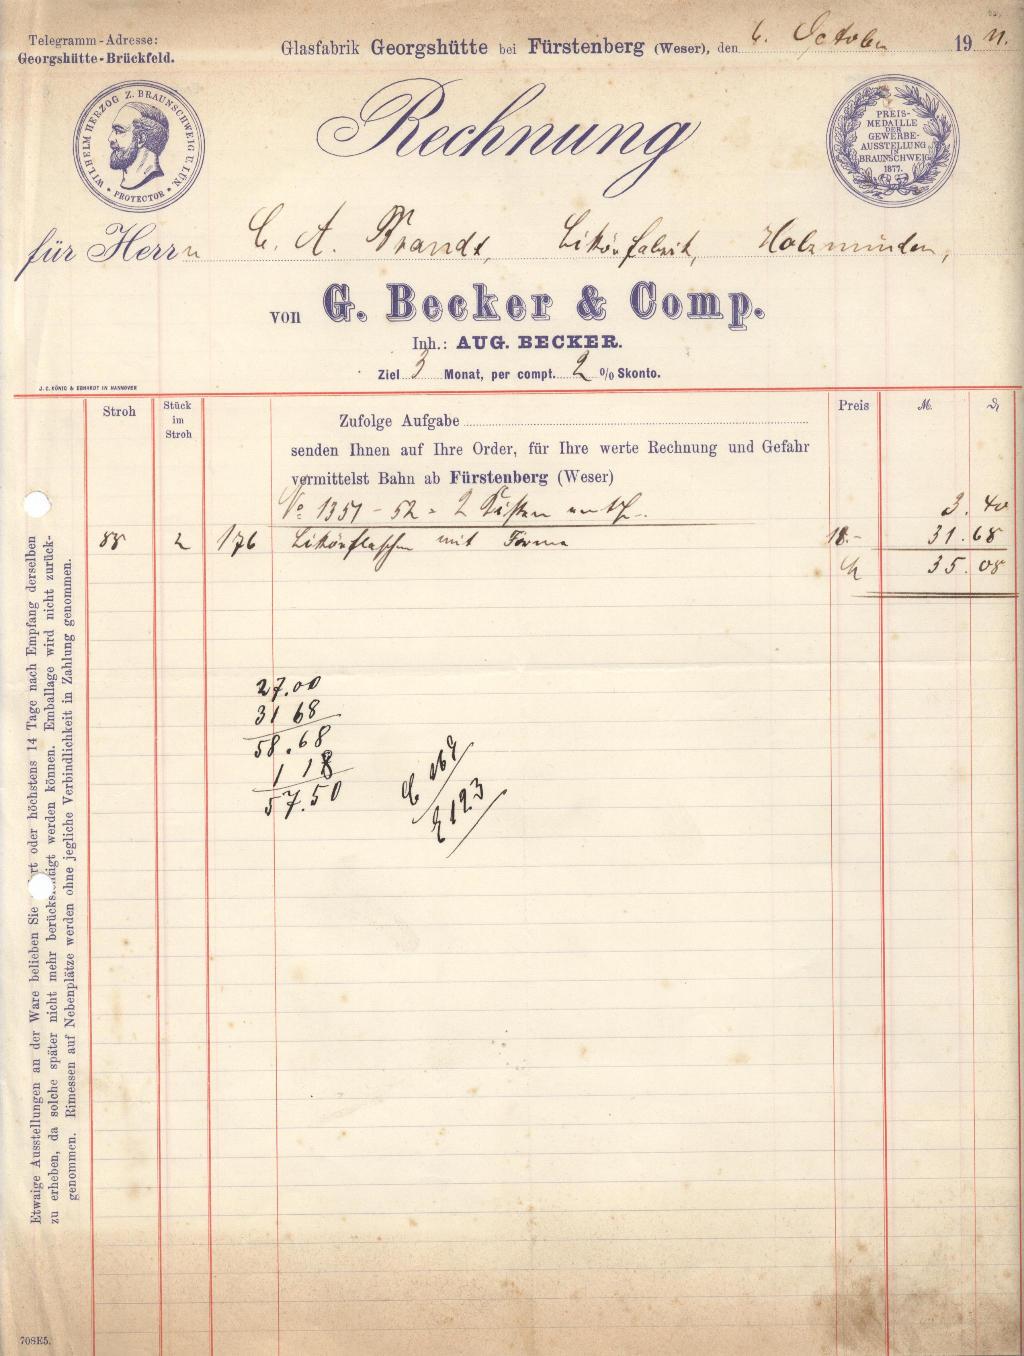 Telegramm-Adresse:
Georgshütte-Brückfeld.
Glasfabrik Georgshütte bei Fürstenberg (Weser), den 6. October 1911.
WILHELM HERZOG Z. BRAUNSCHWEIG U. LÜN.
PROTECTOR
Rechnung
PREIS-
MEDAILLE
DER
GEWERBE-
AUSSTELLUNG
IN
BRAUNSCHWEIG
1877.
für Herrn C. A. Brandt, Likörfabrik, Holzminden,
von G. Becker & Comp.
Inh.: AUG. BECKER.
Ziel 3 Monat, per compt. 2 % Skonto.
J. C. KÖNIG & EBHARDT IN HANNOVER
Stroh
Stück
im
Stroh
Preis
M.
Zufolge Aufgabe
senden Ihnen auf Ihre Order, für Ihre werte Rechnung und Gefahr
vermittelst Bahn ab Fürstenberg (Weser)
No 1351 - 52 = 2 Kisten enth. 3.40
88 2 176 Likörflaschen mit Firma 18.- 31.68
35.08
27.00
31 68
58.68
1 18
57.50
C 169
123
Etwaige Ausstellungen an der Ware belieben Sie rt oder höchstens 14 Tage nach Empfang derselben
zu erheben, da solche später nicht mehr berücksichtigt werden können. Emballage wird nicht zurück-
genommen. Rimessen auf Nebenplätze werden ohne jegliche Verbindlichkeit in Zahlung genommen.
708E5.